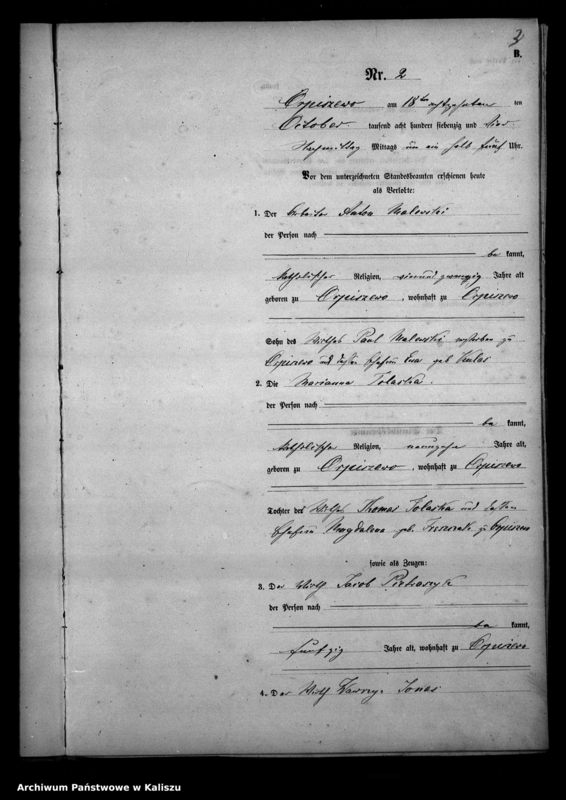 3
B.
Nr. 2
Orpiszewo am 18ten achtzehnten ten
October tausend acht hundert siebenzig und vier
Nachmittag Mittags um ein halb fünf Uhr.
Vor dem unterzeichneten Standesbeamten erschienen heute
als Verlobte:
1. Der Arbeiter Anton Malewski
der Person nach
be kannt,
katholischer Religion, vierundzwanzig Jahre alt
geboren zu Orpiszewo, wohnhaft zu Orpiszewo
Sohn des Wirthes Paul Malewski verstorben zu
Orpiszewo und dessen Ehefrau Eva geb.
2. Die Marianna Tolaska.
der Person nach
be kannt,
katholischer Religion, neunzehn Jahre alt,
geboren zu Orpiszewo, wohnhaft zu Orpiszewo
Tochter des Wirthes Thomas Tolaska und dessen
Ehefrau Magdalena geb. zu Orpiszewo
sowie als Zeugen:
3. Der Wirth Jacob Pietraszyk
der Person nach
be kannt,
fünfzig Jahre alt, wohnhaft zu Orpiszewo
4. Der Wirth Jonas
Archiwum Państwowe w Kaliszu